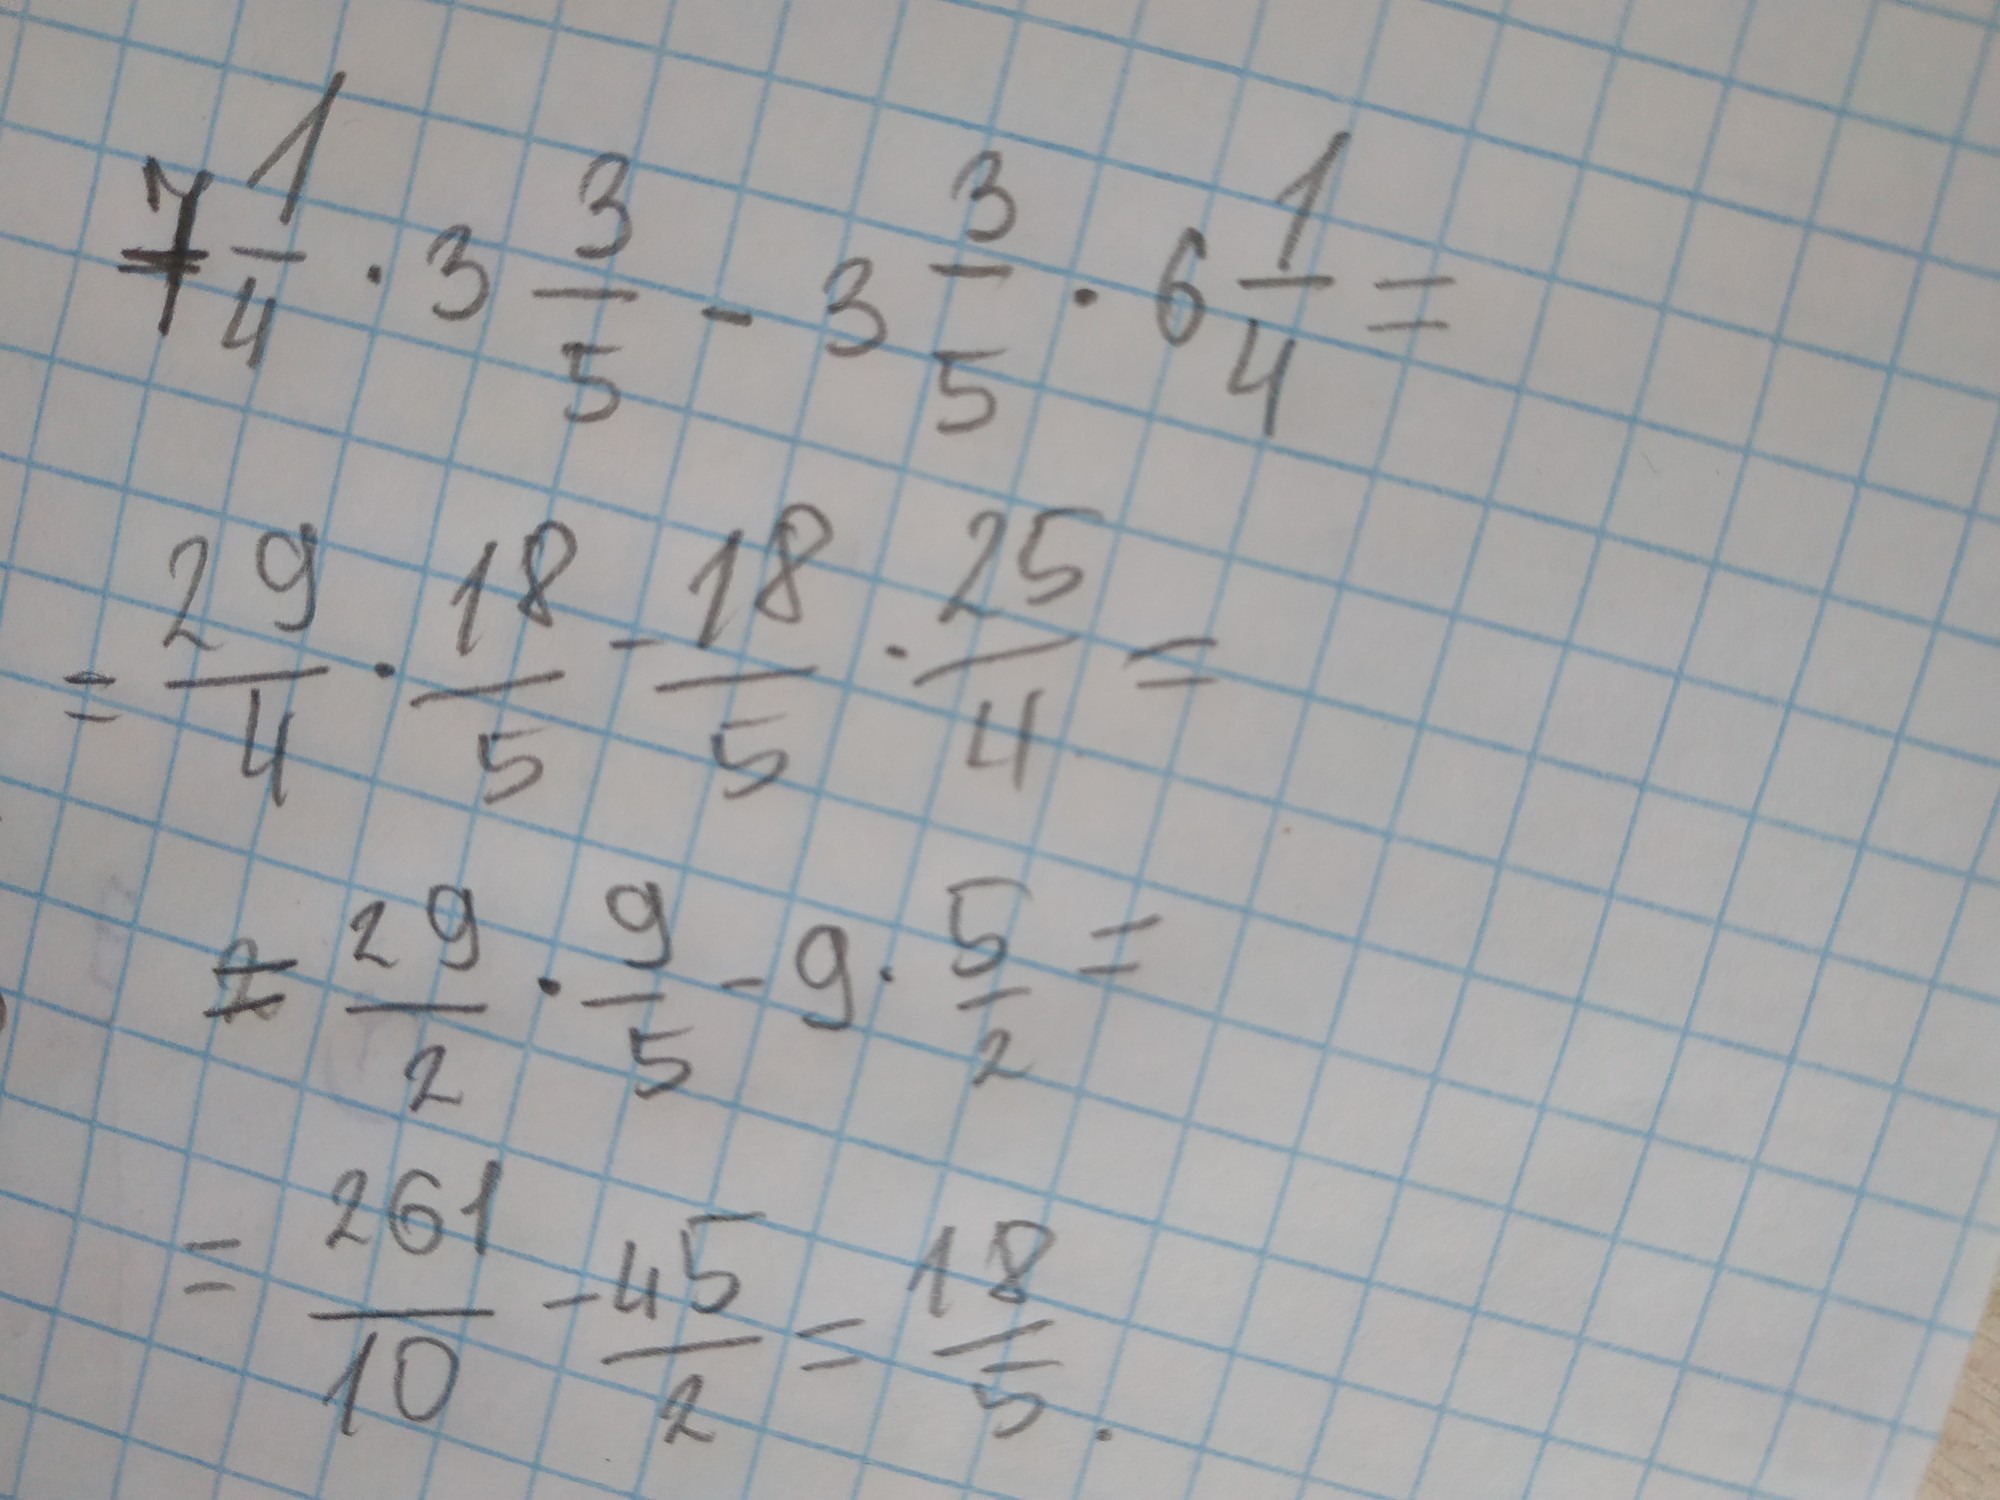 7 1/4 · 3 3/5 - 3 3/5 · 6 1/4 =
= 29/4 · 18/5 - 18/5 · 25/4 =
= 29/2 · 9/5 - 9 · 5/2 =
= 261/10 - 45/2 = 18/5 .